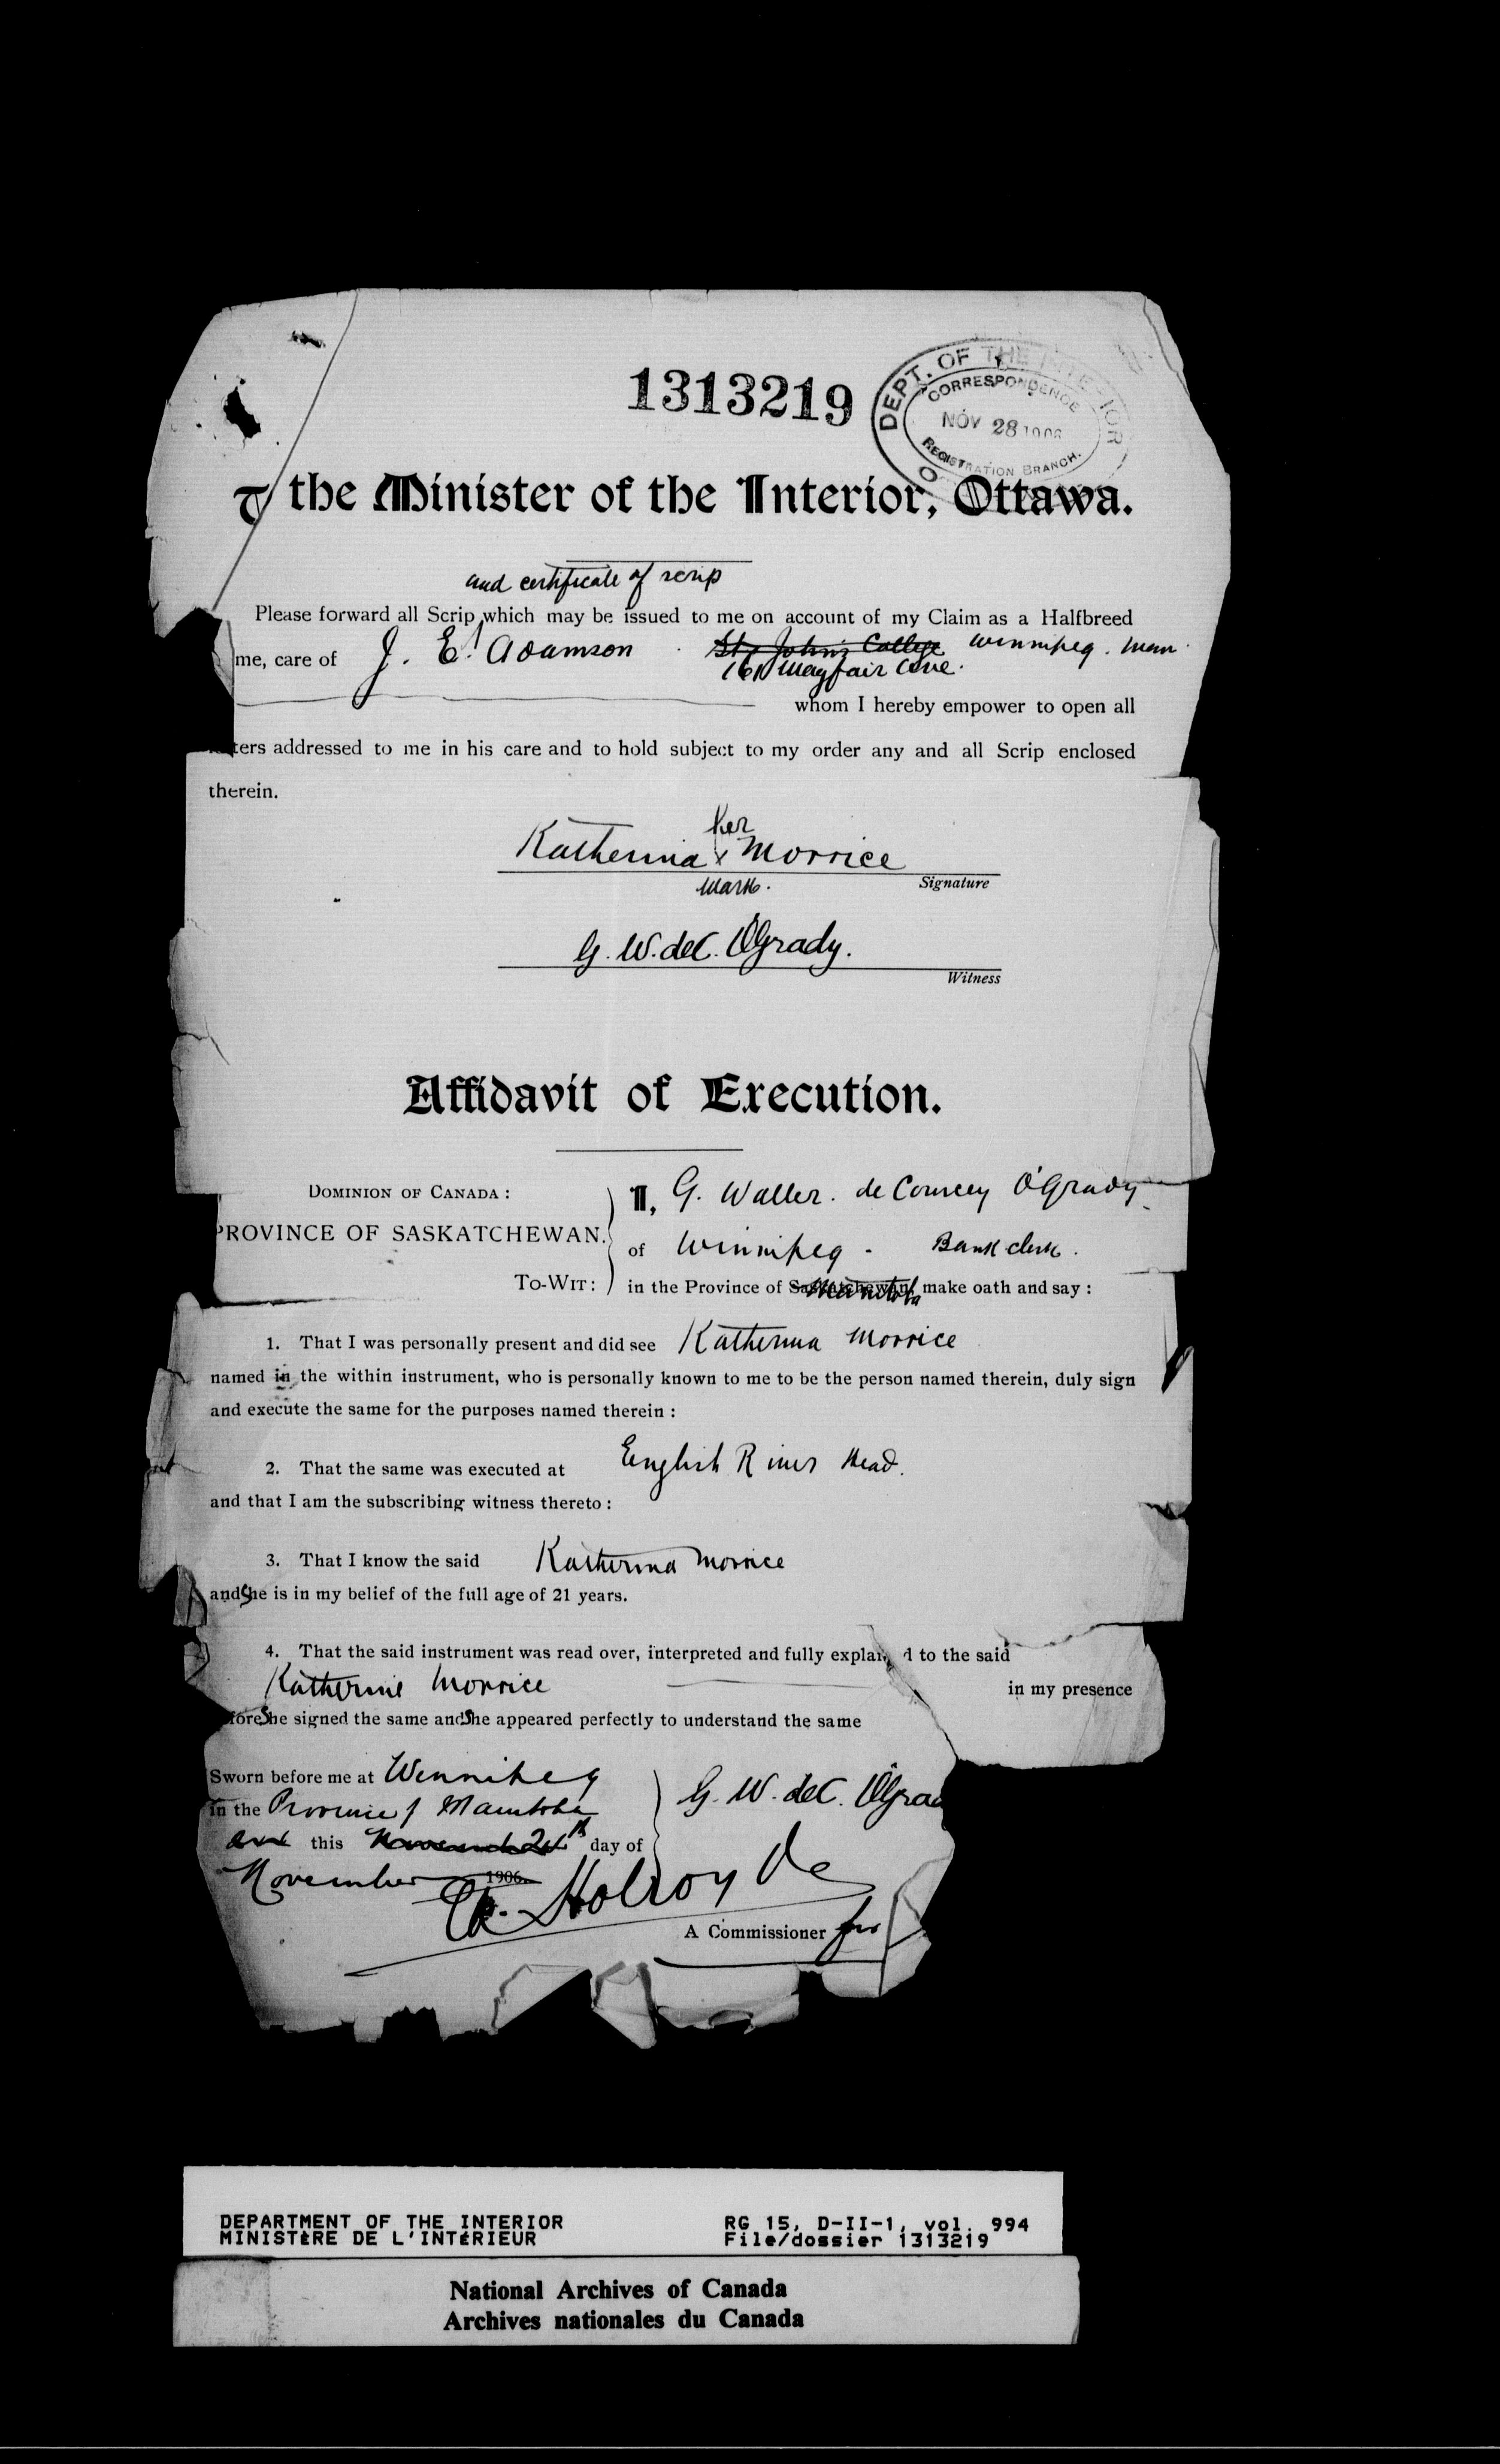 1313219
DEPT. OF THE INTERIOR
CORRESPONDENCE
NOV 28 1906
REGISTRATION BRANCH.
O
T the Minister of the Interior, Ottawa.
and certificate of scrip
Please forward all Scrip which may be issued to me on account of my Claim as a Halfbreed
me, care of J. E. Adamson St. John's College Winnipeg. Man.
161 Mayfair Ave.
whom I hereby empower to open all
ters addressed to me in his care and to hold subject to my order any and all Scrip enclosed
therein.
her
Katherina x Morrice
Signature
mark.
G. W. deC. O'Grady.
Witness
Affidavit of Execution.
DOMINION OF CANADA:
PROVINCE OF SASKATCHEWAN.
TO-WIT:
I, G. Waller. de Courcey O'Grady
of Winnipeg - Bank clerk.
in the Province of Saskatchewan Manitoba make oath and say:
1. That I was personally present and did see Katherina Morrice
named in the within instrument, who is personally known to me to be the person named therein, duly sign
and execute the same for the purposes named therein:
2. That the same was executed at English River Head.
and that I am the subscribing witness thereto:
3. That I know the said Katherina Morrice
and She is in my belief of the full age of 21 years.
4. That the said instrument was read over, interpreted and fully explain d to the said
Katherine Morrice in my presence
fore She signed the same and She appeared perfectly to understand the same
Sworn before me at Winnipeg
in the Province of Manitoba
this 24th day of
November 1906.
G. W. deC. O'Grad
Holroyde
A Commissioner for
DEPARTMENT OF THE INTERIOR
MINISTÈRE DE L'INTÉRIEUR
RG 15, D-II-1, vol. 994
File/dossier 1313219
National Archives of Canada
Archives nationales du Canada